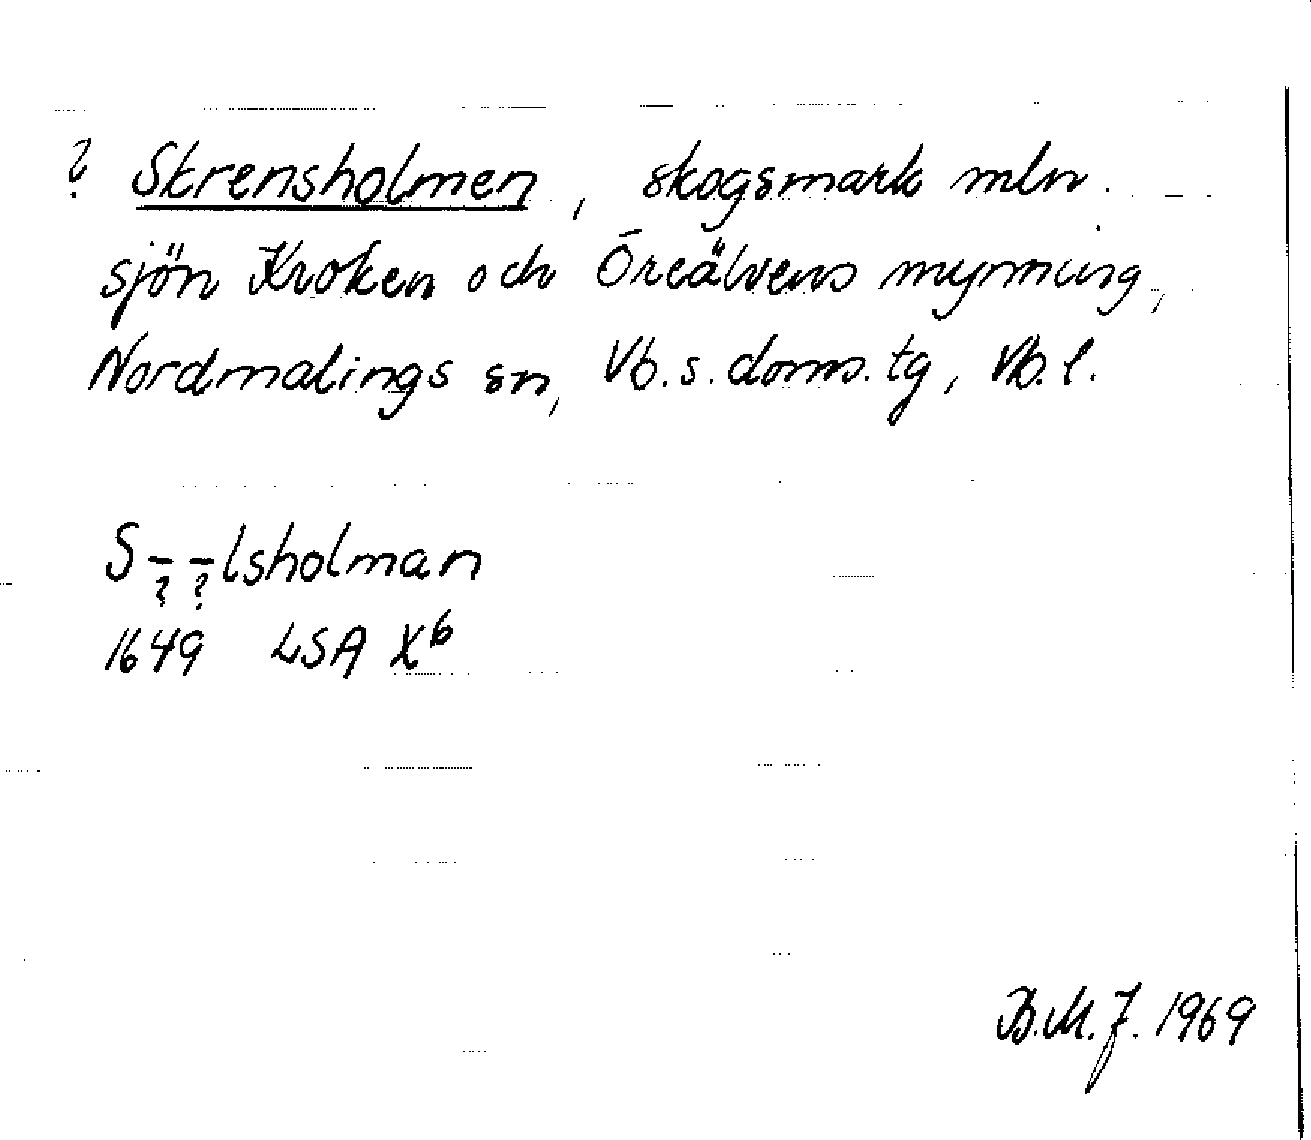 ? Skrensholmen, skogsmark mln.
sjön Kroken och Öreälvens mynning,
Nordmalings sn, Vb. s. doms. tg, Vb. l.
S – – lsholman
? ?
1649 LSA X6
B.M.J. 1969